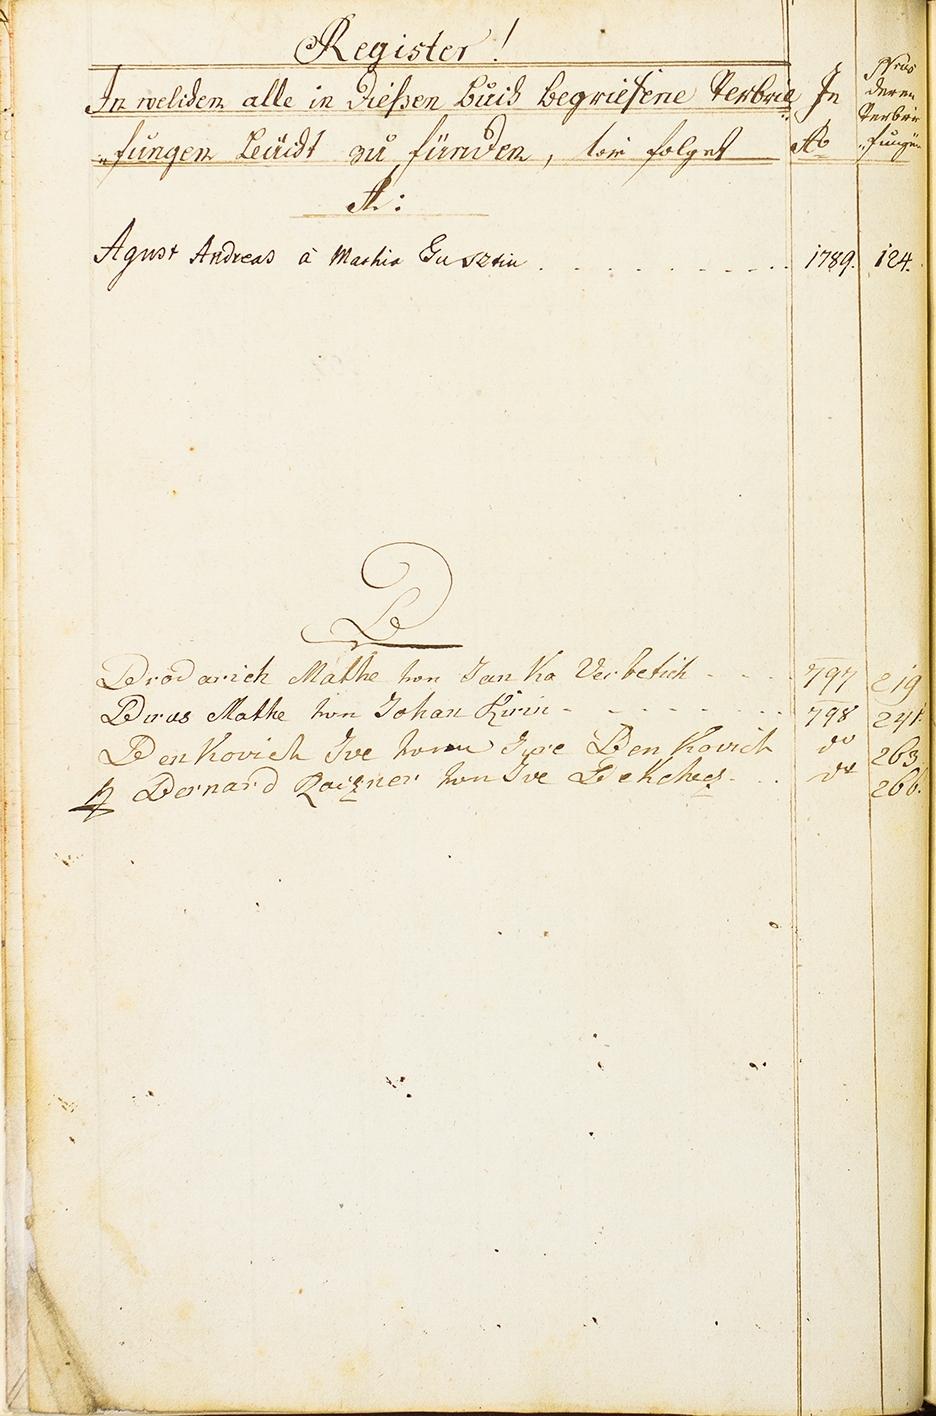 Register!
In welichem alle in Dießen Buich begriefene Verbrie
„fungen Leüdt zu fünden, wie folget
In
A͞o
Nrus
deren
Verbrie
„fungen
A:
Agust Andreas à Mathia Gusztin . . . . . . . . . 1789. 124.
D
Drodarich Mathe von Janko Verbetich - - - - 797 219
Duras Mathe von Johan Kirin - - - - - - - 798 241.
Denkovich Ive vonn Ive Denkovich do 263.
Bernard Raizner von Ive Dekchez. . . do 266.